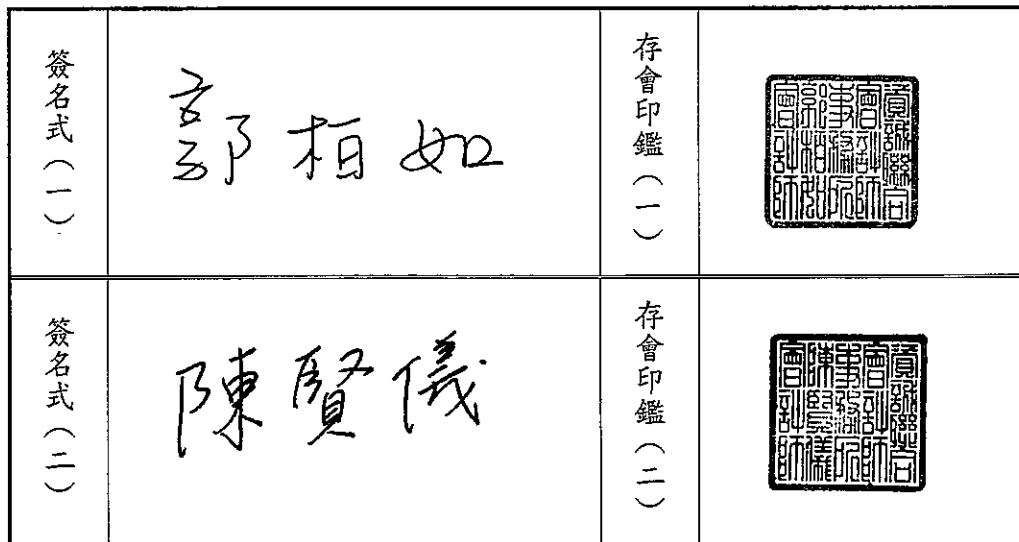 簽名式(一)
郭柏如
存會印鑑(一)
資誠聯合
會計師
事務所
郭柏如
會計師
簽名式(二)
陳賢儀
存會印鑑(二)
資誠聯合
會計師
事務所
陳賢儀
會計師